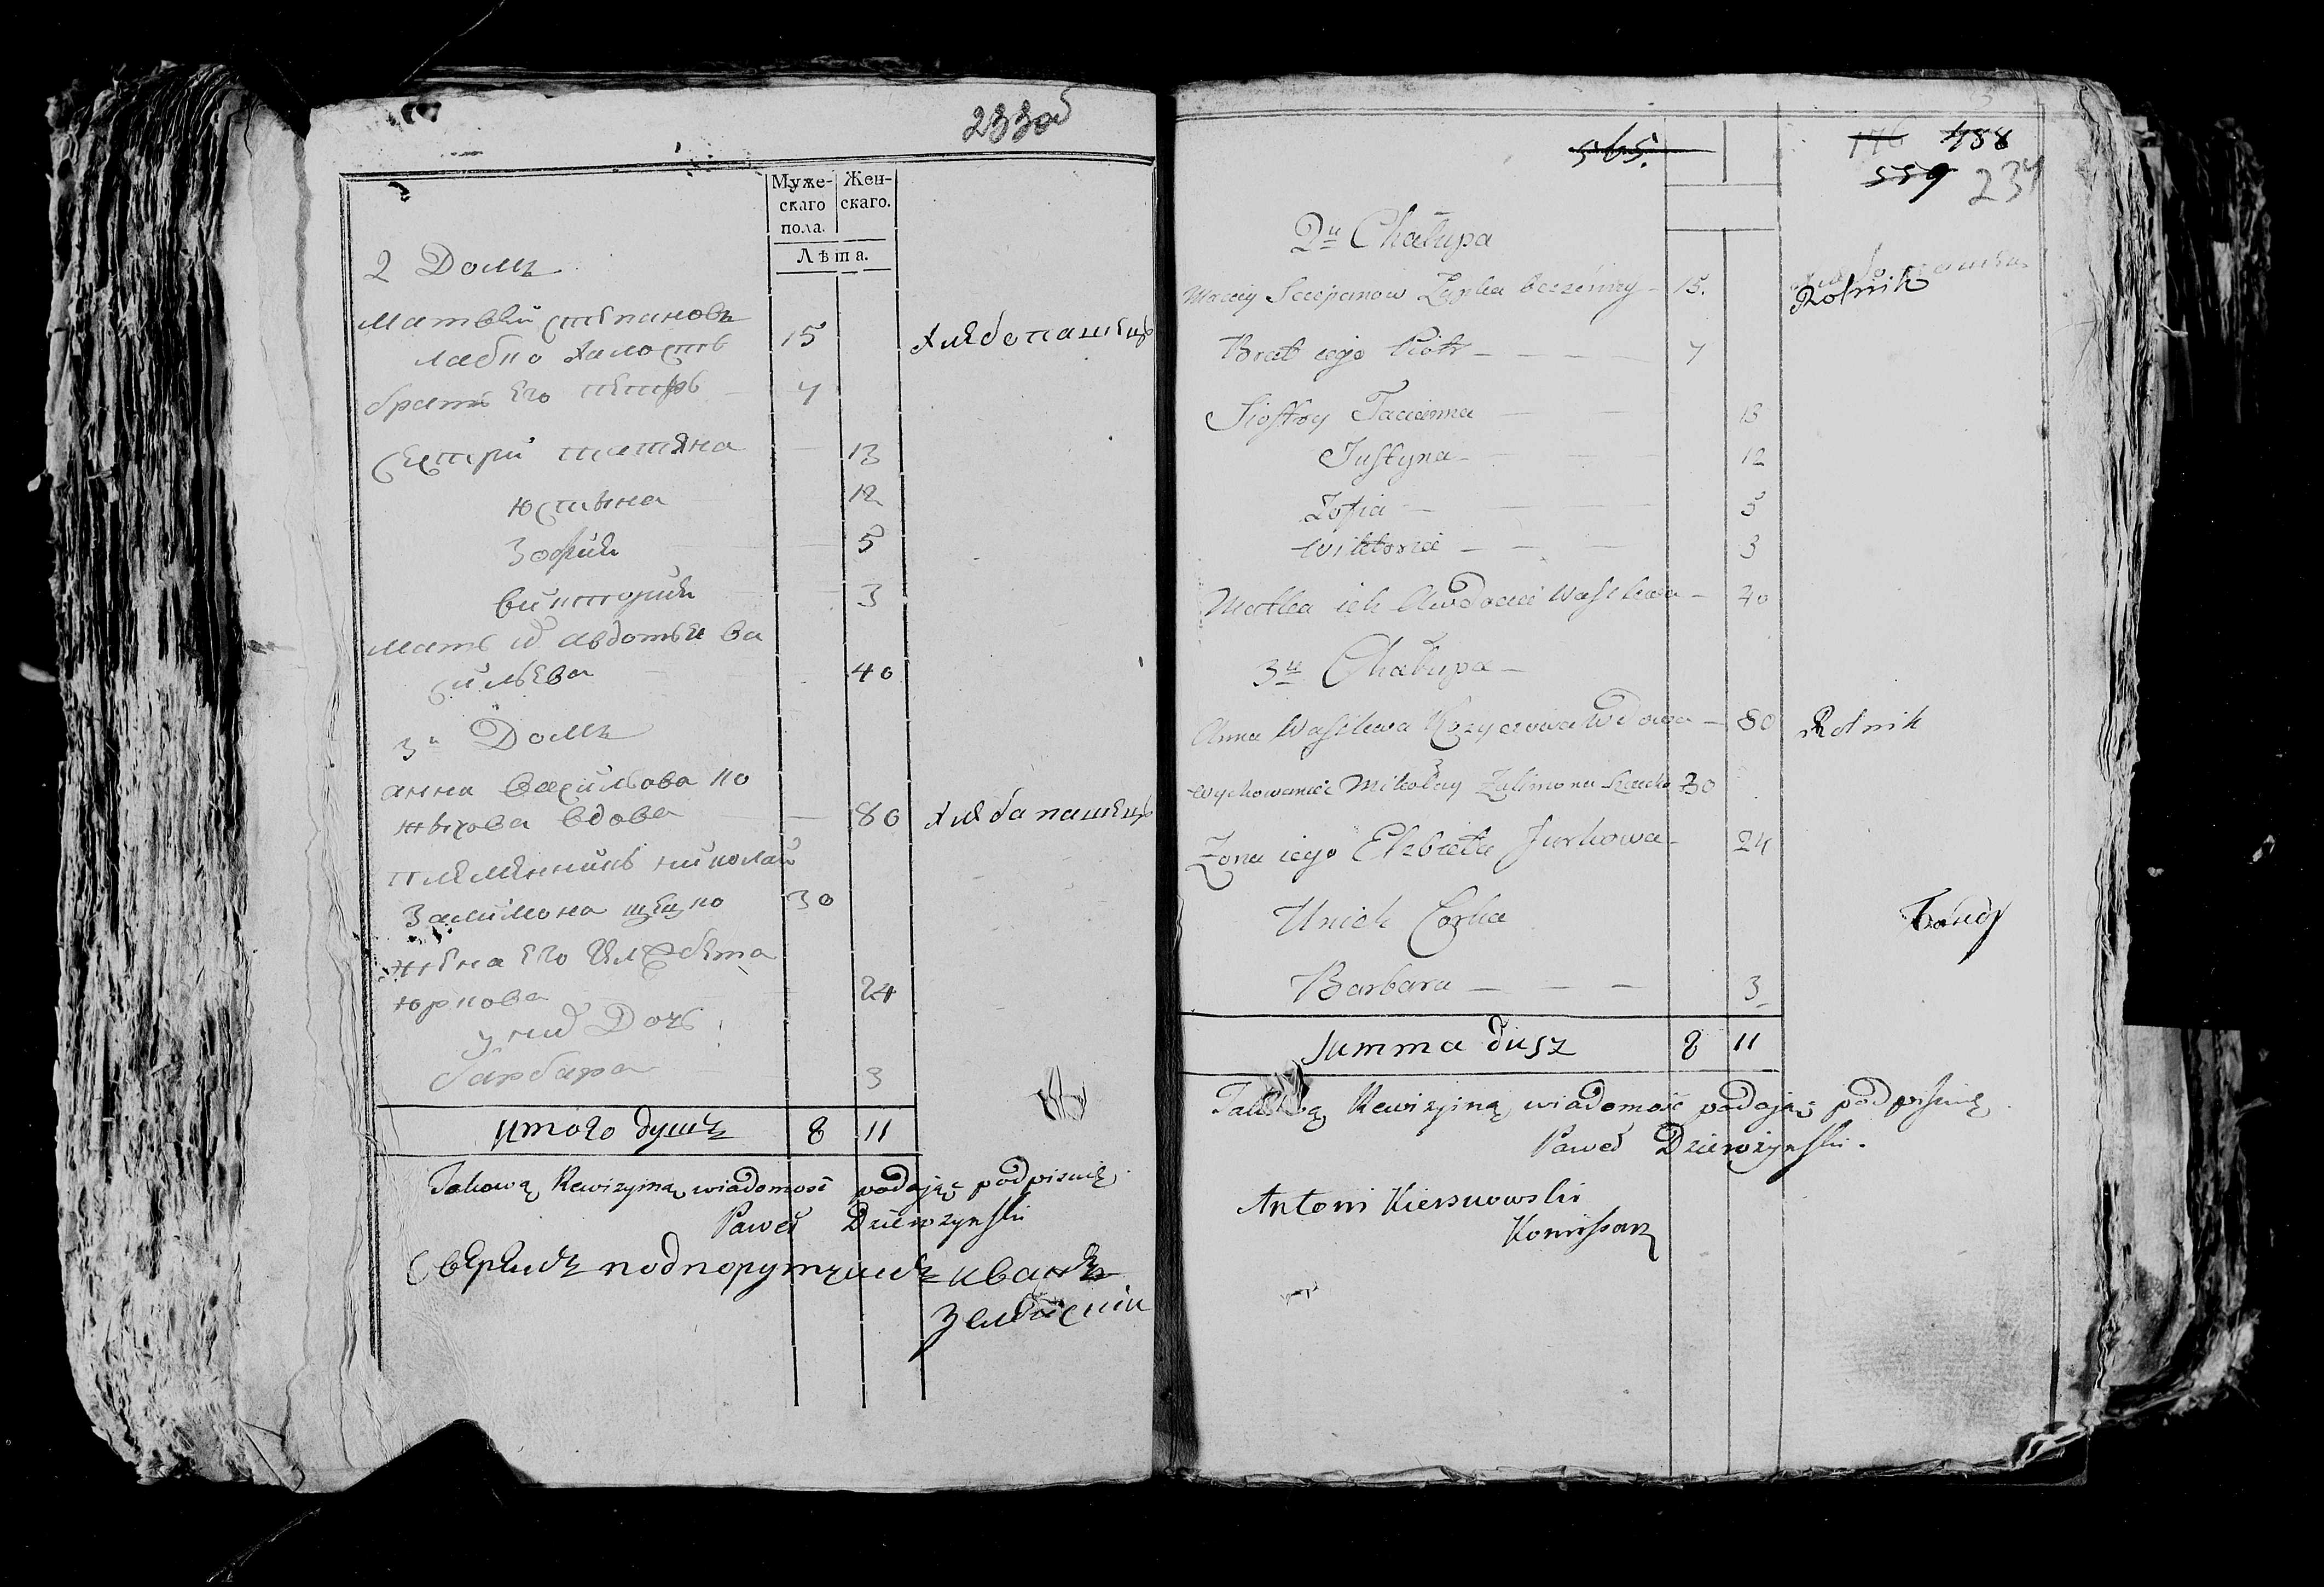 233об
Муже-
скаго
пола.
Жен-
скаго.
Лѣта.
2 Домъ
Матвѣй Степановъ
15 хлѣбопашецъ
братъ его Петръ 7
Сестри Татяна 13
Юстына 12
Зофия 5
Виктория 3
Мать их Авдотья Ва
сильева 40
3й Домъ
Анна Васильова Ко
жыхова вдова 80 хлѣбапашецъ
племянникъ Николай
Залимона 30
жена его Елзбета
Юркова 24
у них Дочь
барбара 3
Итого душъ 8 11
Takową Rewizyiną wiadomość podaiąc podpisuię
Paweł Dziewzynski
Сверялъ подпорутчикъ Иванъ
565.
176 488
559 234
2a Chałupa
Maciey Szczepanow bezżenny 15. Rolnik
Brat iego Piotr 7
Siostry Tacianna 13
Justyna 12
Zofia 5
Wiktoria 3
Matka ich Awdocia Wasilewa 40
3a Chałupa
Anna Wasilewa Wdowa 80 Rolnik
Wychowaniec Mikołay Zalimona 30
Zona iego Elzbieta Jurkowa 24
U nich Corka
Barbara 3
Summa dusz 8 11
Takową Rewizyiną wiadomość podaiąc podpisuię
Paweł Dziewzynski.
Antoni Kiersnowski
Komissarz